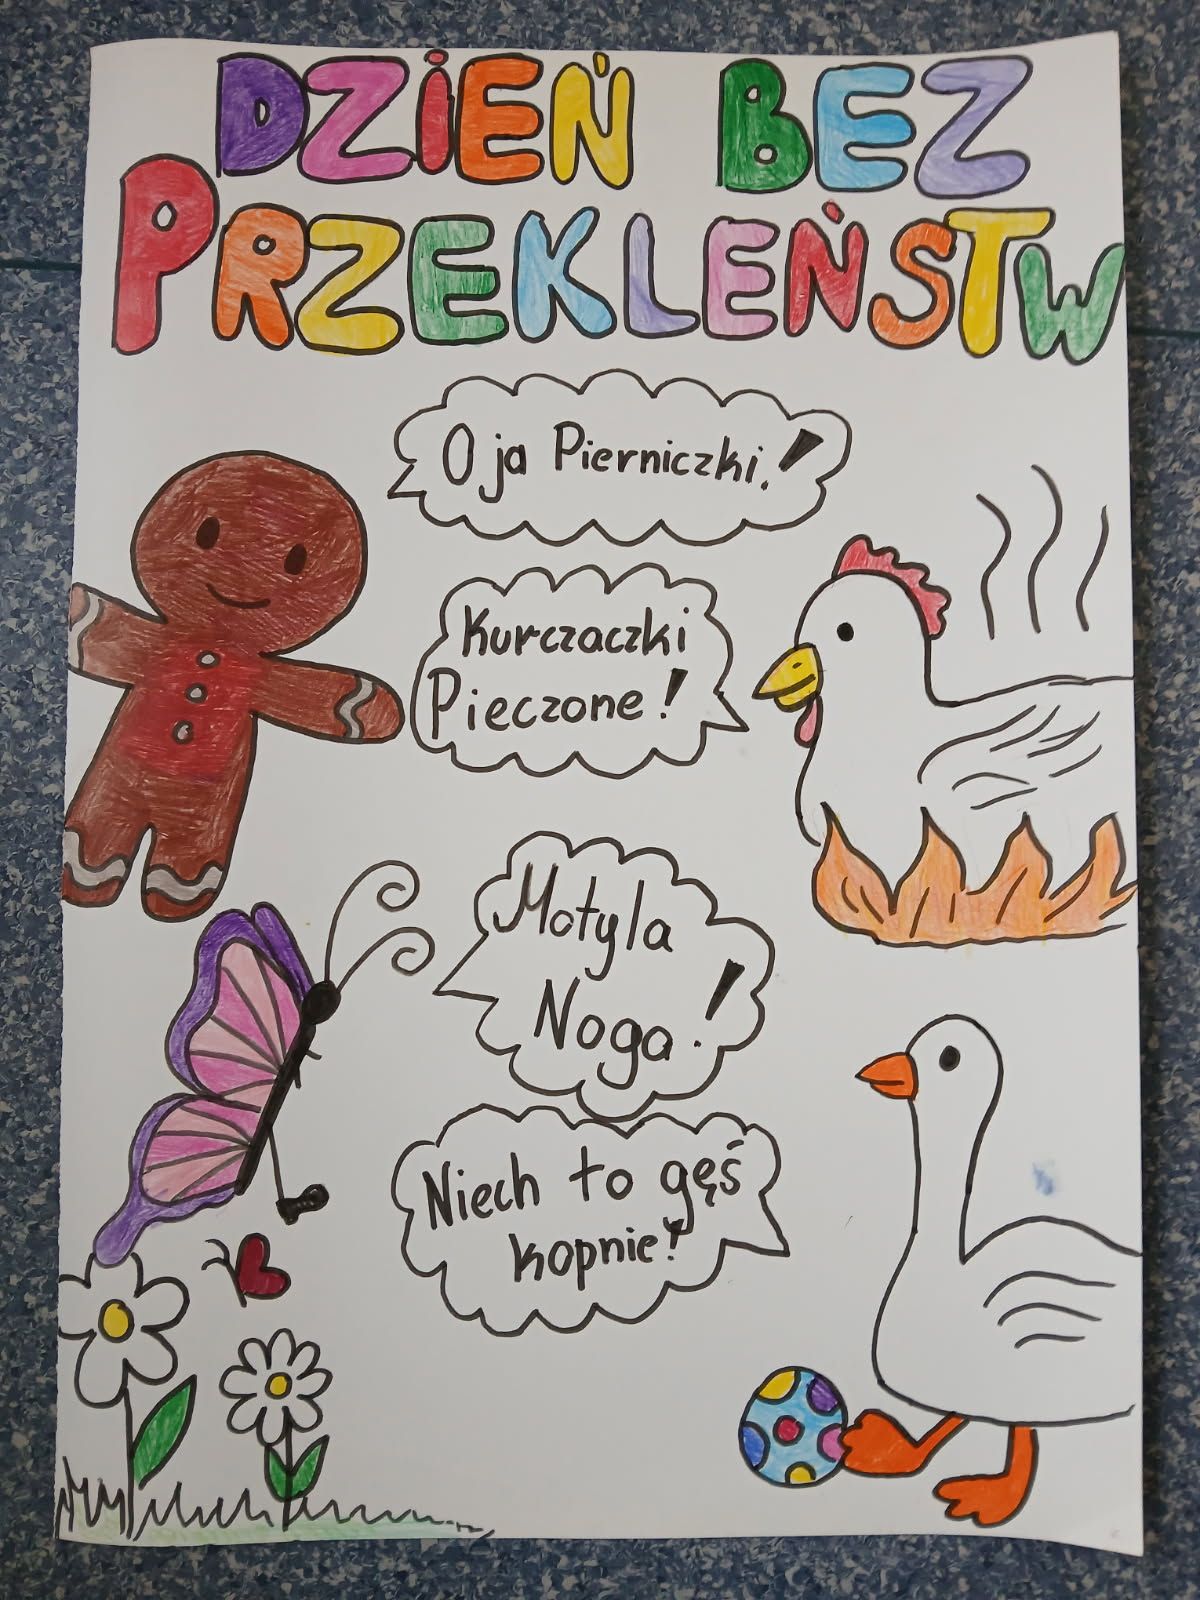 DZIEŃ BEZ
PRZEKLEŃSTW
O ja Pierniczki!
Kurczaczki
Pieczone!
Motyla
Noga!
Niech to gęś
kopnie!